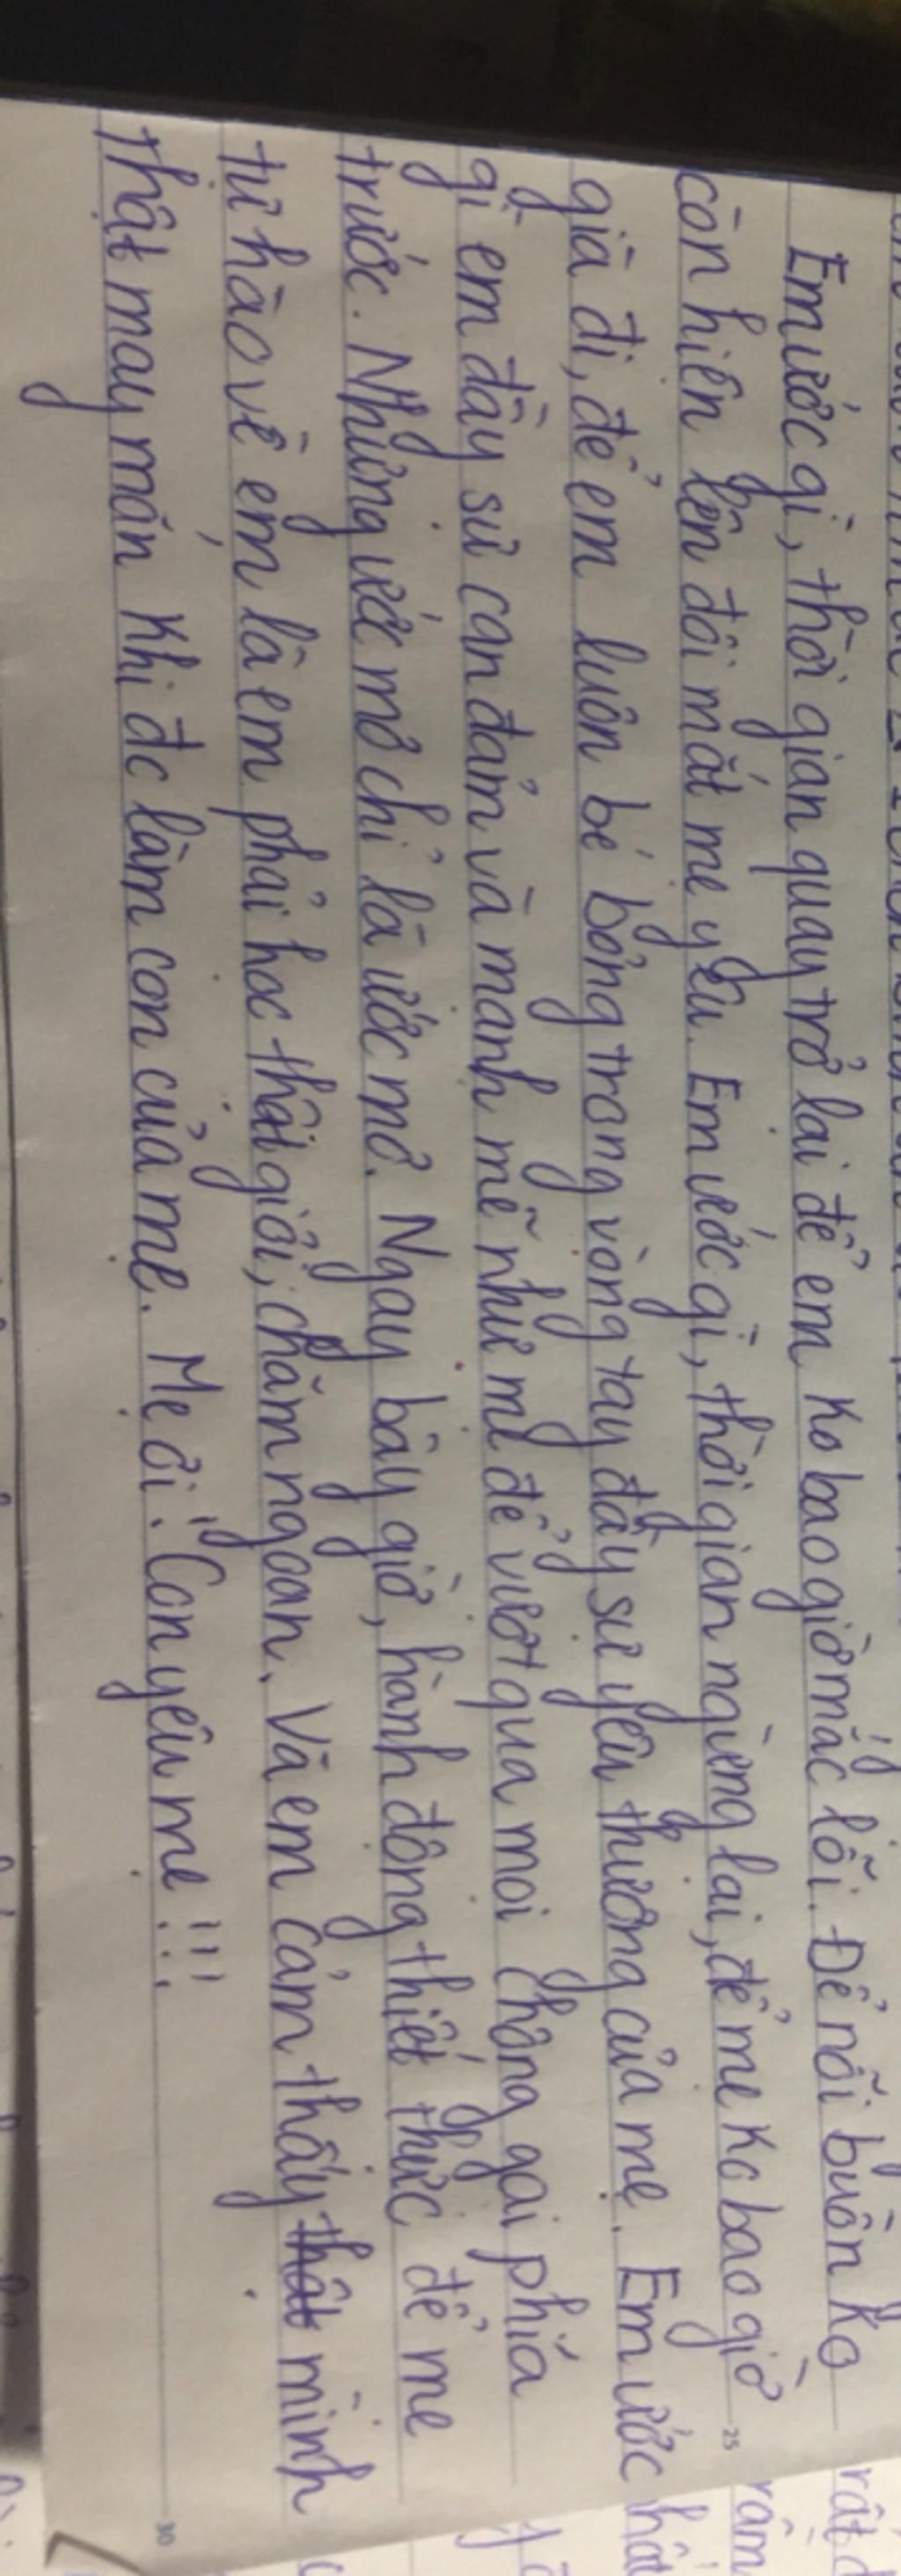 Em ước gì, thời gian quay trở lại để em ko bao giờ mắc lỗi. Để nỗi buồn ko
còn hiện lên đôi mắt mẹ yêu. Em ước gì, thời gian ngừng lại, để mẹ ko bao giờ
già đi, để em luôn bé bỏng trong vòng tay đầy sự yêu thương của mẹ. Em ước
gì em đầy sự can đảm và mạnh mẽ như mẹ để vượt qua mọi chông gai phía
trước. Những ước mơ chỉ là ước mơ. Ngay bây giờ, hành động thiết thực để mẹ
tự hào về em là em phải học thật giỏi, chăm ngoan. Và em cảm thấy thật mình
thật may mắn khi đc làm con của mẹ. Mẹ ơi! Con yêu mẹ!!!
25
30